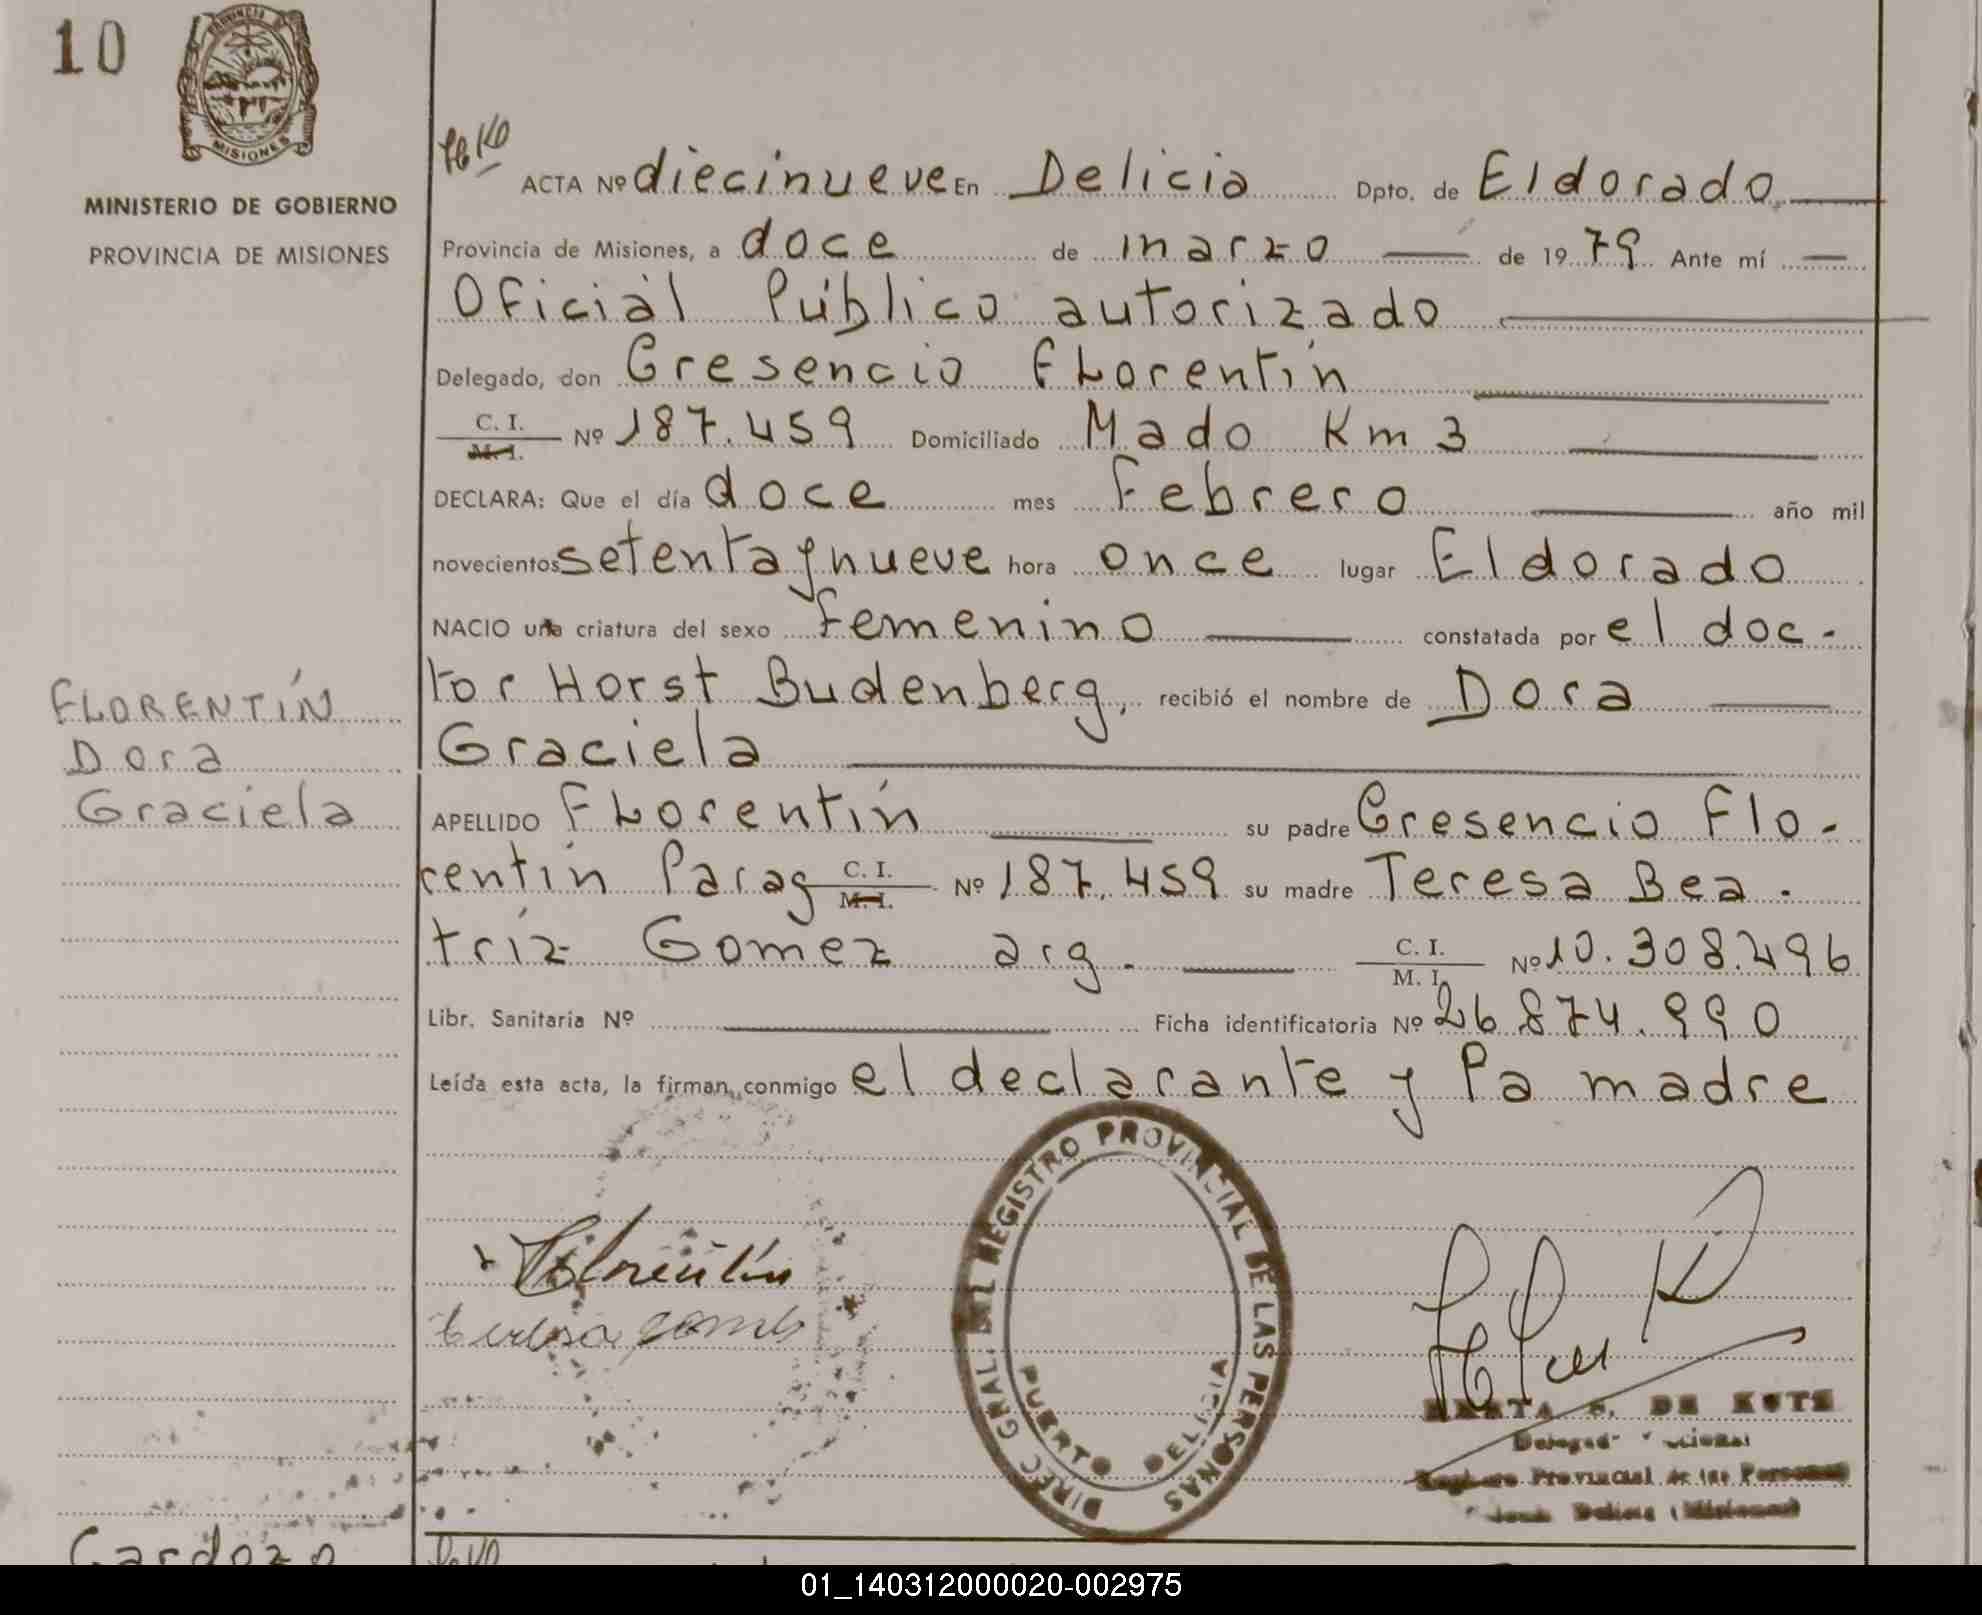 10
PROVINCIA DE
MISIONES
MINISTERIO DE GOBIERNO
PROVINCIA DE MISIONES
ACTA Nº diecinueve En Delicia Dpto. de Eldorado
Provincia de Misiones, a doce de marzo de 1979 Ante mí
Oficial Público autorizado
Delegado, don Cresencio Florentín
C. I. M. I. Nº 187.459 Domiciliado Mado Km 3
DECLARA: Que el día doce mes Febrero año mil
novecientos setenta y nueve hora once lugar Eldorado
NACIO una criatura del sexo femenino constatada por el doc-
tor Horst Budenberg, recibió el nombre de Dora
Graciela
FLORENTÍN
Dora
Graciela
APELLIDO Florentín su padre Cresencio Flo-
rentín Parag C. I. M. I. Nº 187.459 su madre Teresa Bea-
tríz Gomez arg. C. I. M. I. Nº 10.308.496
Libr. Sanitaria Nº Ficha identificatoria Nº 26.874.990
Leída esta acta, la firman conmigo el declarante y la madre
Florentín
teresa gomez
DIREC GRAL. DEL REGISTRO PROVINCIAL DE LAS PERSONAS
PUERTO DELICIA
DE KUTZ
Registro Provincial de las Personas
Delicia (Misiones)
Cardozo
01_140312000020-002975